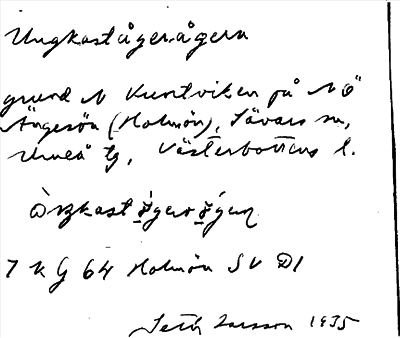 Ungkastågerågern
grund N Kuntviken på N ö
Ängesön (Holmön), Sävars sn,
Umeå tg, Västerbottens l.
7 K G 64 Holmön SV D1
Seth Larsson 1935